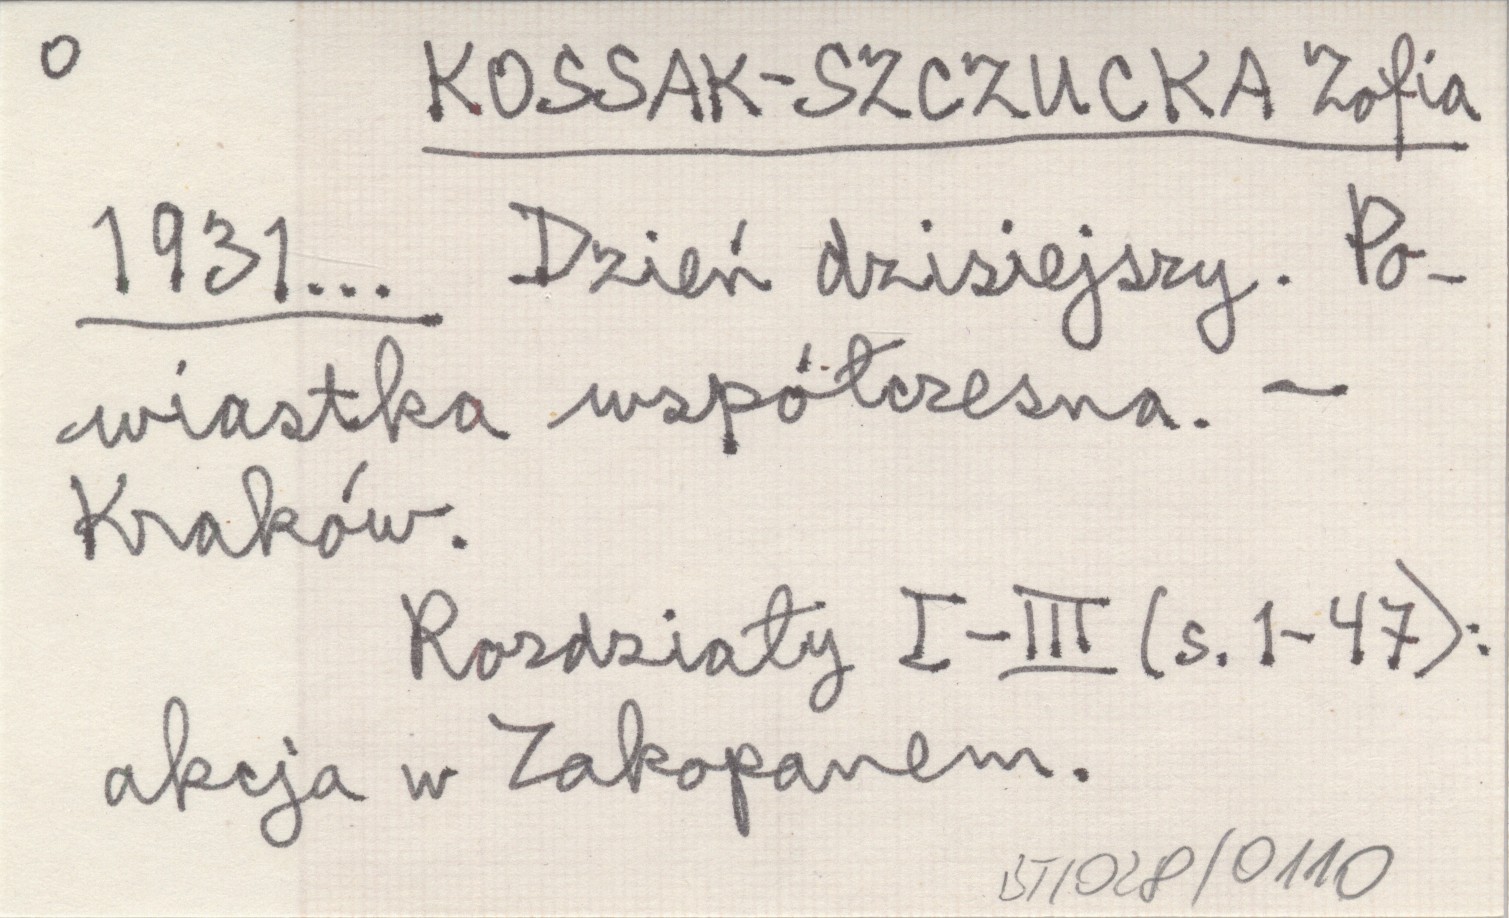 O KOSSAK-SZCZUCKA Zofia
1931... Dzień dzisiejszy. Po-
wiastka współczesna. –
Kraków.
Rozdziały I-III (s. 1-47):
akcja w Zakopanem.
BT/028/0110